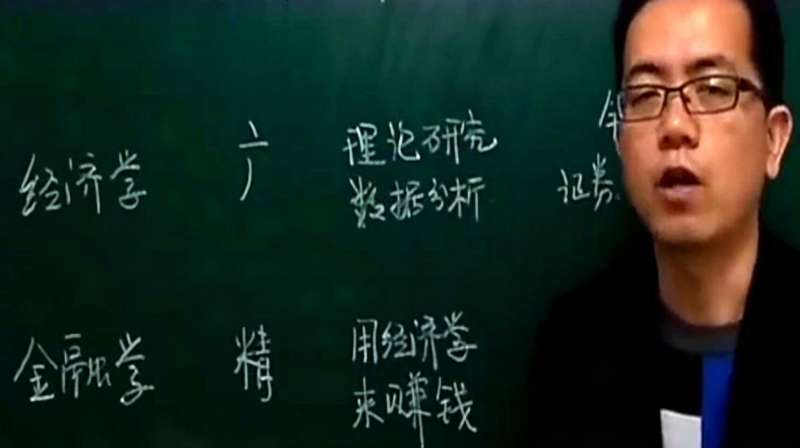 经济学 广 理论研究
数据分析 证券
金融学 精 用经济学
来赚钱